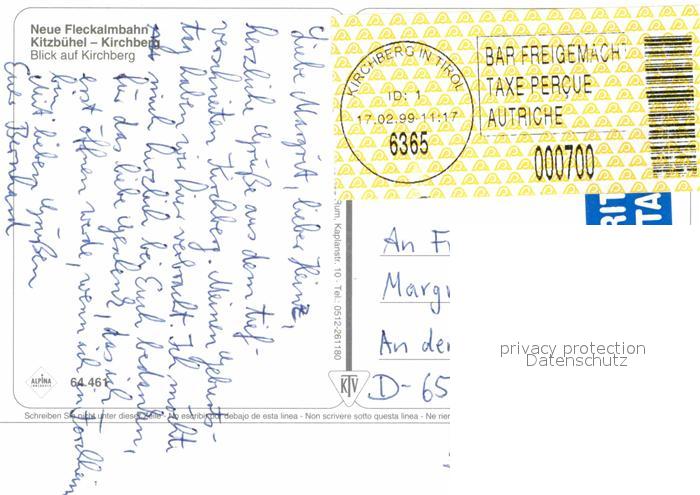 Neue Fleckalmbahn
Kitzbühel – Kirchberg
Blick auf Kirchberg
Liebe Margrit, lieber Heinz,
herzliche Grüße aus dem tief-
verschneiten Kirchberg. Meinen Geburts-
tag haben wir hier verbracht. Ich möchte
mich herzlich bei Euch bedanken,
für das liebe Geschenk, das ich
erst öffnen werde, wenn ich in
bin.
Mit lieben Grüßen
Euer Bernhard
KIRCHBERG IN TIROL
ID: 1
17.02.99-11:17
6365
BAR FREIGEMACHT
TAXE PERÇUE
AUTRICHE
000700
RIT
TA
Rum, Kaplanstr. 10 - Tel. 0512-261180
An Fr
Margr
An der
D-65
privacy protection
Datenschutz
ALPINA
64.461
KTV
Schreiben Sie nicht unter dieser Zeile - No escribir por debajo de esta linea - Non scrivere sotto questa linea - Ne rien